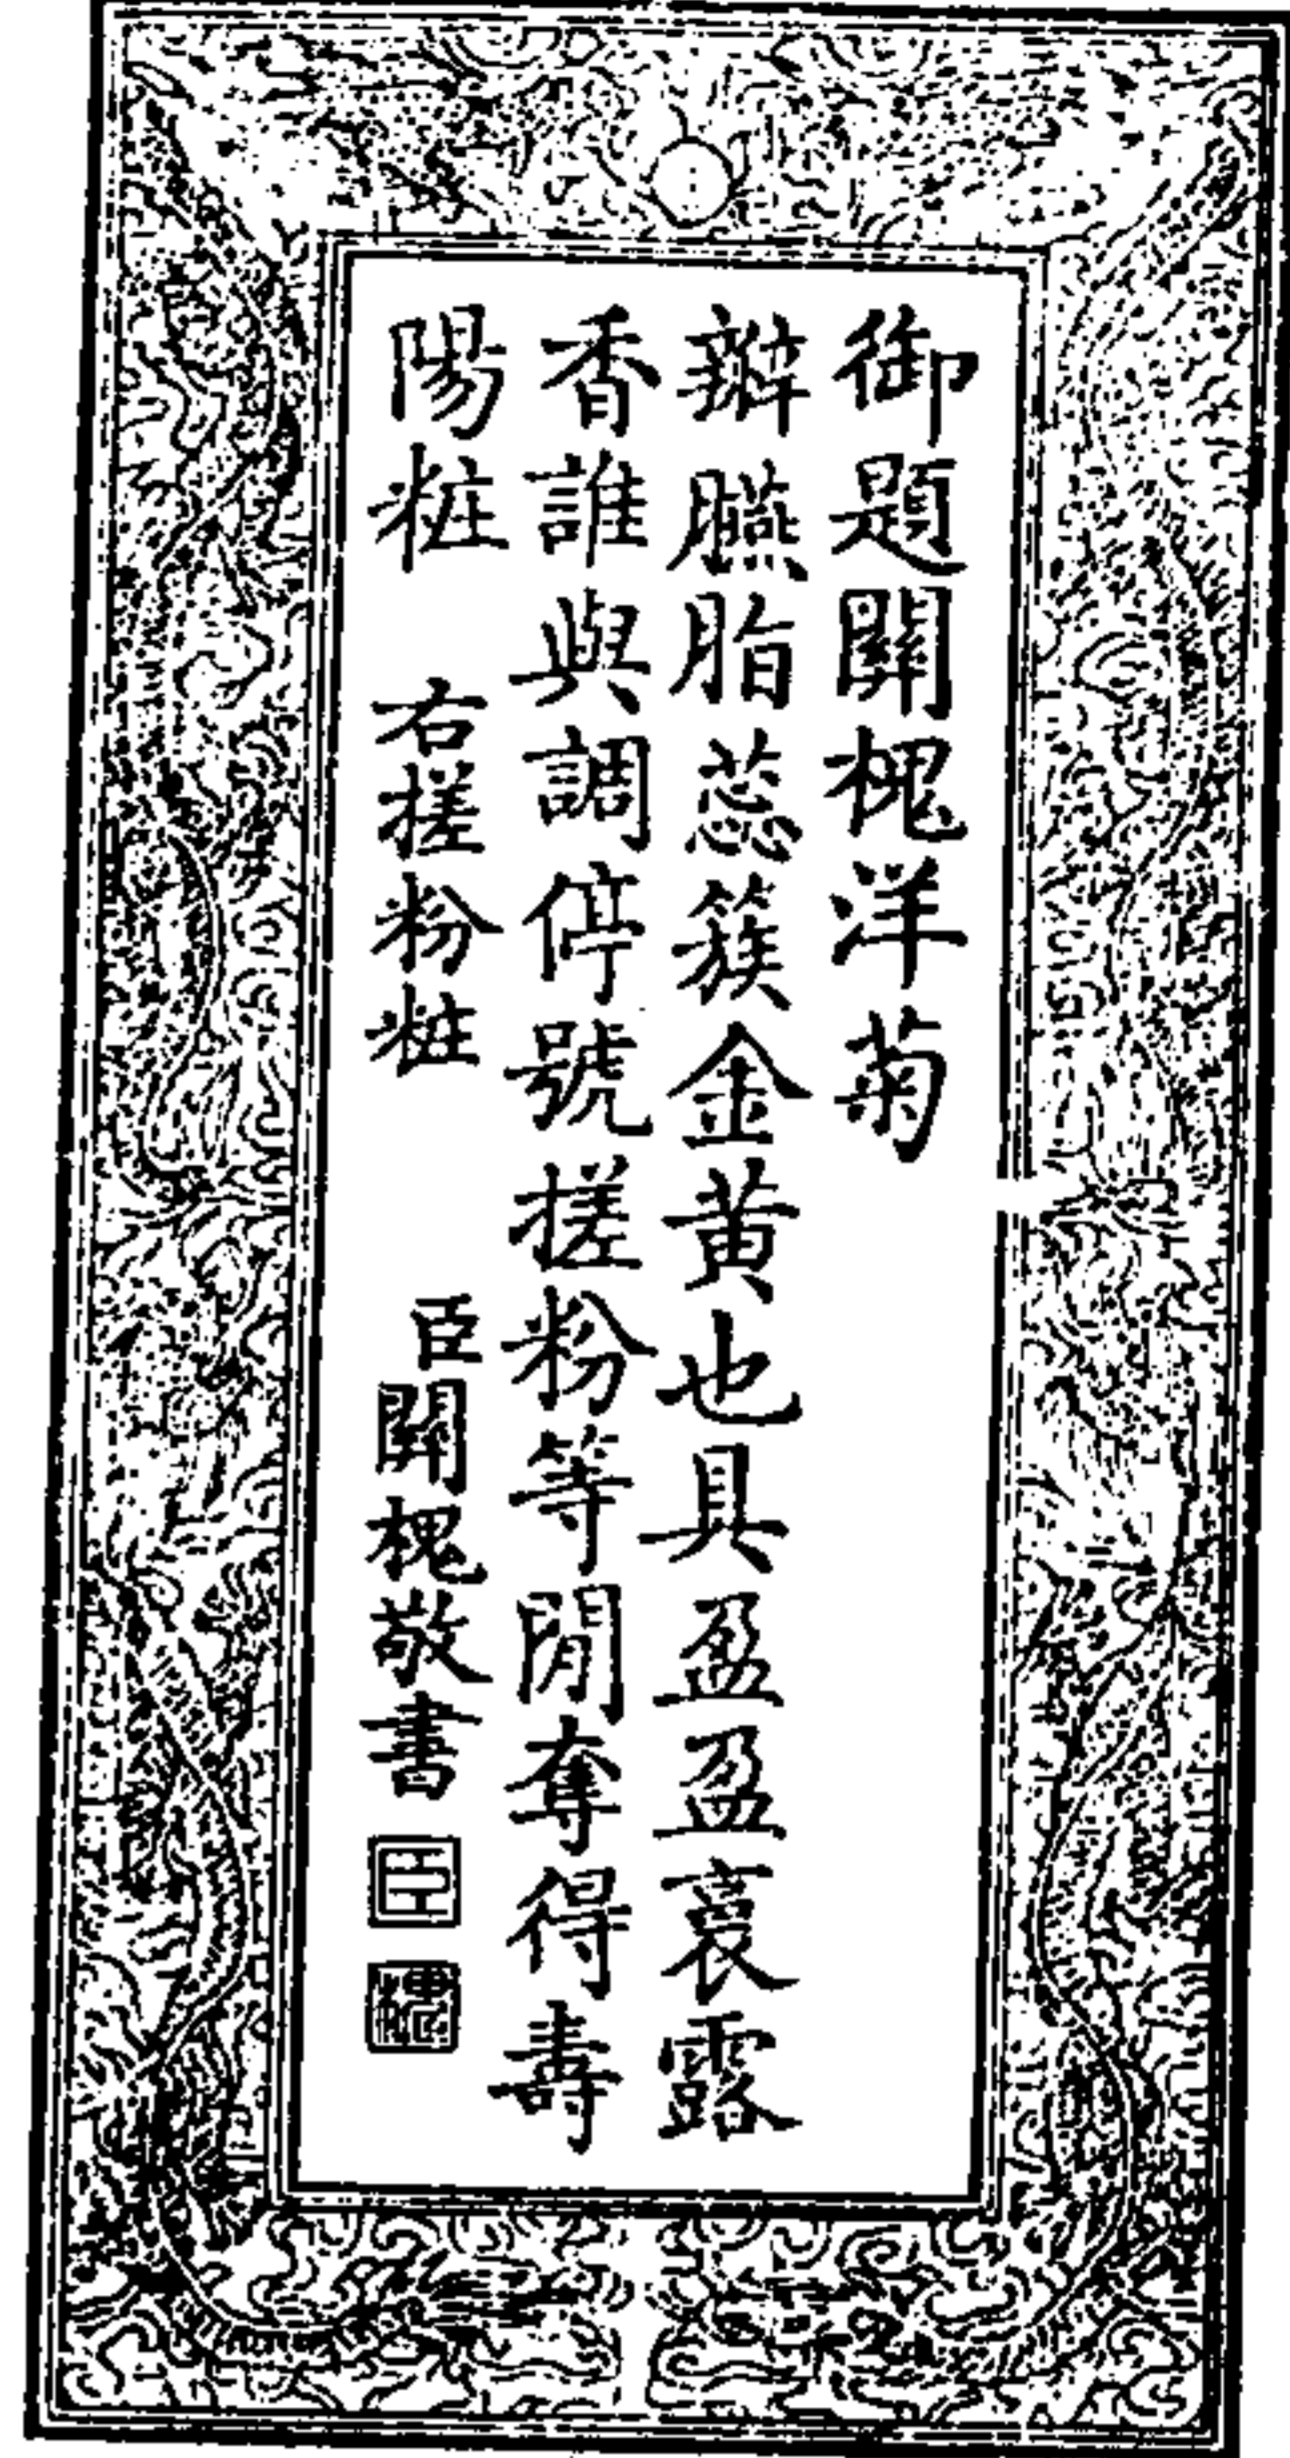 御題關槐洋菊
瓣臙脂蕊簇金黄也具盈盈裛露
香誰與調停號搓粉等閒奪得壽
陽粧 右搓粉粧
臣關槐敬書
臣
槐